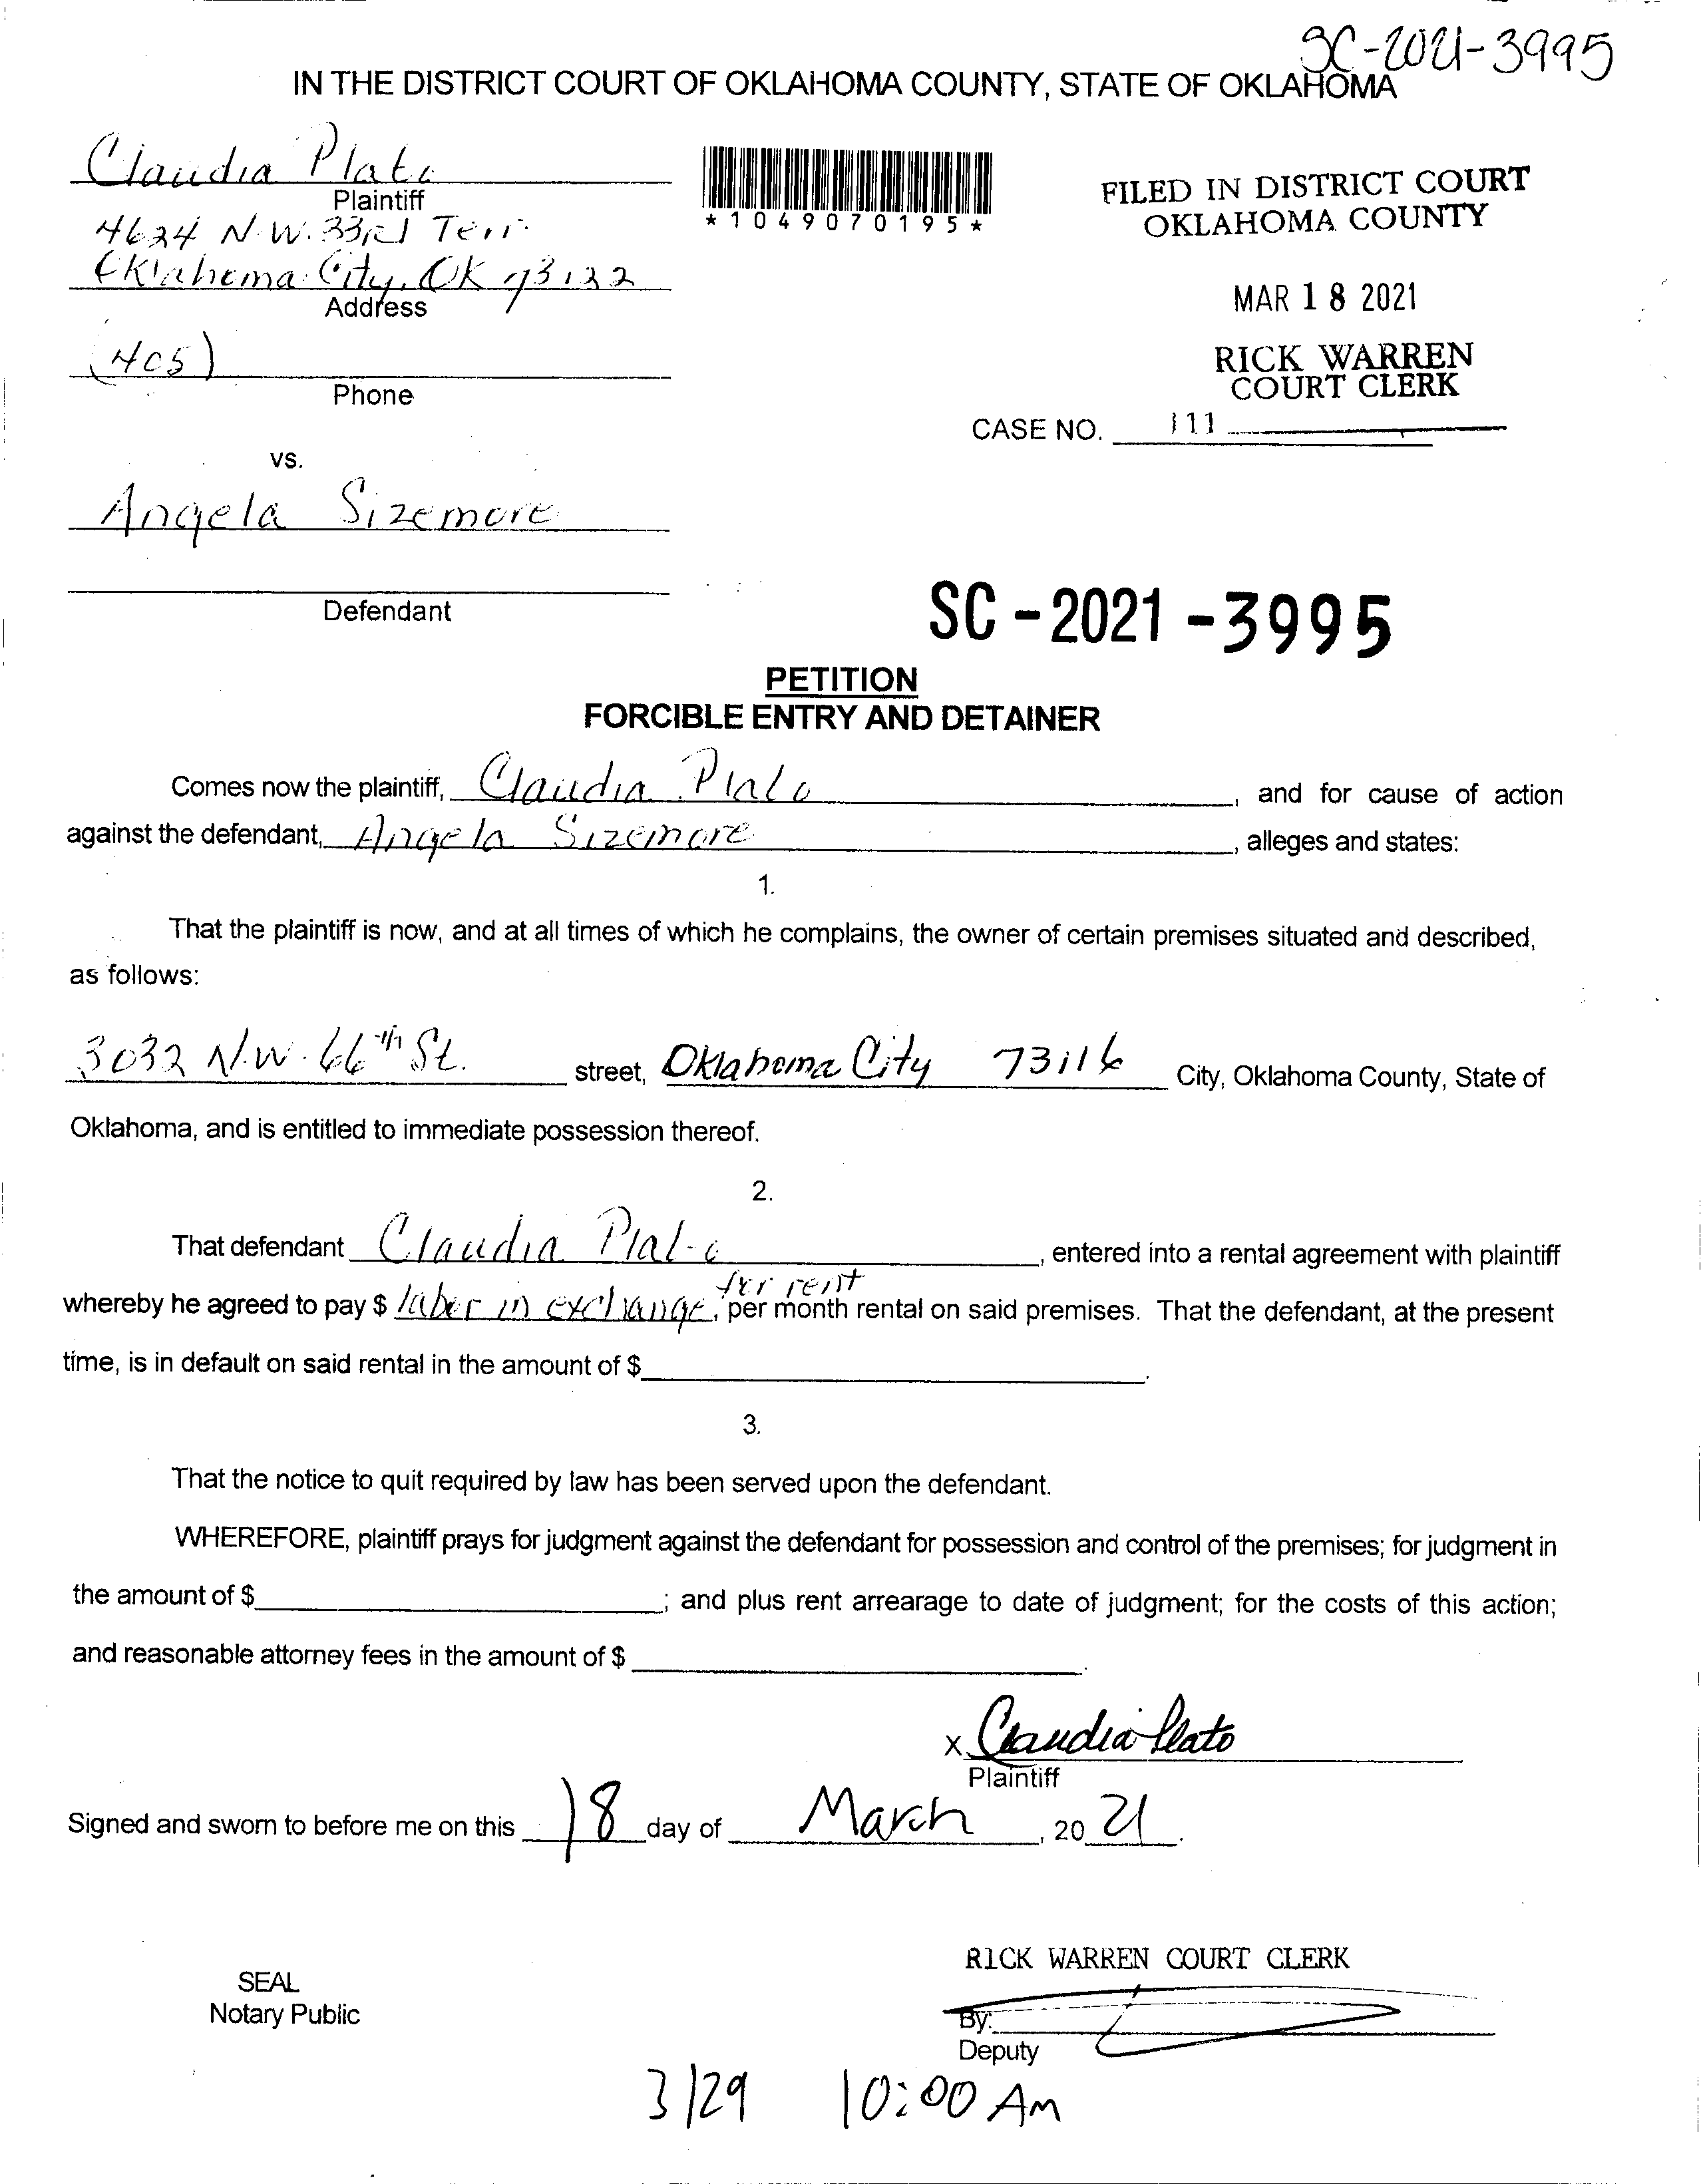 SC-2021-3995
IN THE DISTRICT COURT OF OKLAHOMA COUNTY, STATE OF OKLAHOMA
Claudia Plato
Plaintiff
4624 N.W. 33rd Terr.
Oklahoma City, OK 73122
Address
(405)
Phone
*1049070195*
FILED IN DISTRICT COURT
OKLAHOMA COUNTY
MAR 18 2021
RICK WARREN
COURT CLERK
CASE NO. 111
vs.
Angela Sizemore
Defendant
SC-2021-3995
PETITION
FORCIBLE ENTRY AND DETAINER
Comes now the plaintiff, Claudia Plato, and for cause of action
against the defendant, Angela Sizemore, alleges and states:
1.
That the plaintiff is now, and at all times of which he complains, the owner of certain premises situated and described,
as follows:
3032 N.W. 66th St. street, Oklahoma City 73116 City, Oklahoma County, State of
Oklahoma, and is entitled to immediate possession thereof.
2.
That defendant Claudia Plato, entered into a rental agreement with plaintiff
for rent
whereby he agreed to pay $ labor in exchange, per month rental on said premises. That the defendant, at the present
time, is in default on said rental in the amount of $ .
3.
That the notice to quit required by law has been served upon the defendant.
WHEREFORE, plaintiff prays for judgment against the defendant for possession and control of the premises; for judgment in
the amount of $ ; and plus rent arrearage to date of judgment; for the costs of this action;
and reasonable attorney fees in the amount of $ .
x Claudia Plato
Plaintiff
Signed and sworn to before me on this 18 day of March, 2021.
RICK WARREN COURT CLERK
SEAL
Notary Public
By:
Deputy
3/29 10:00 AM